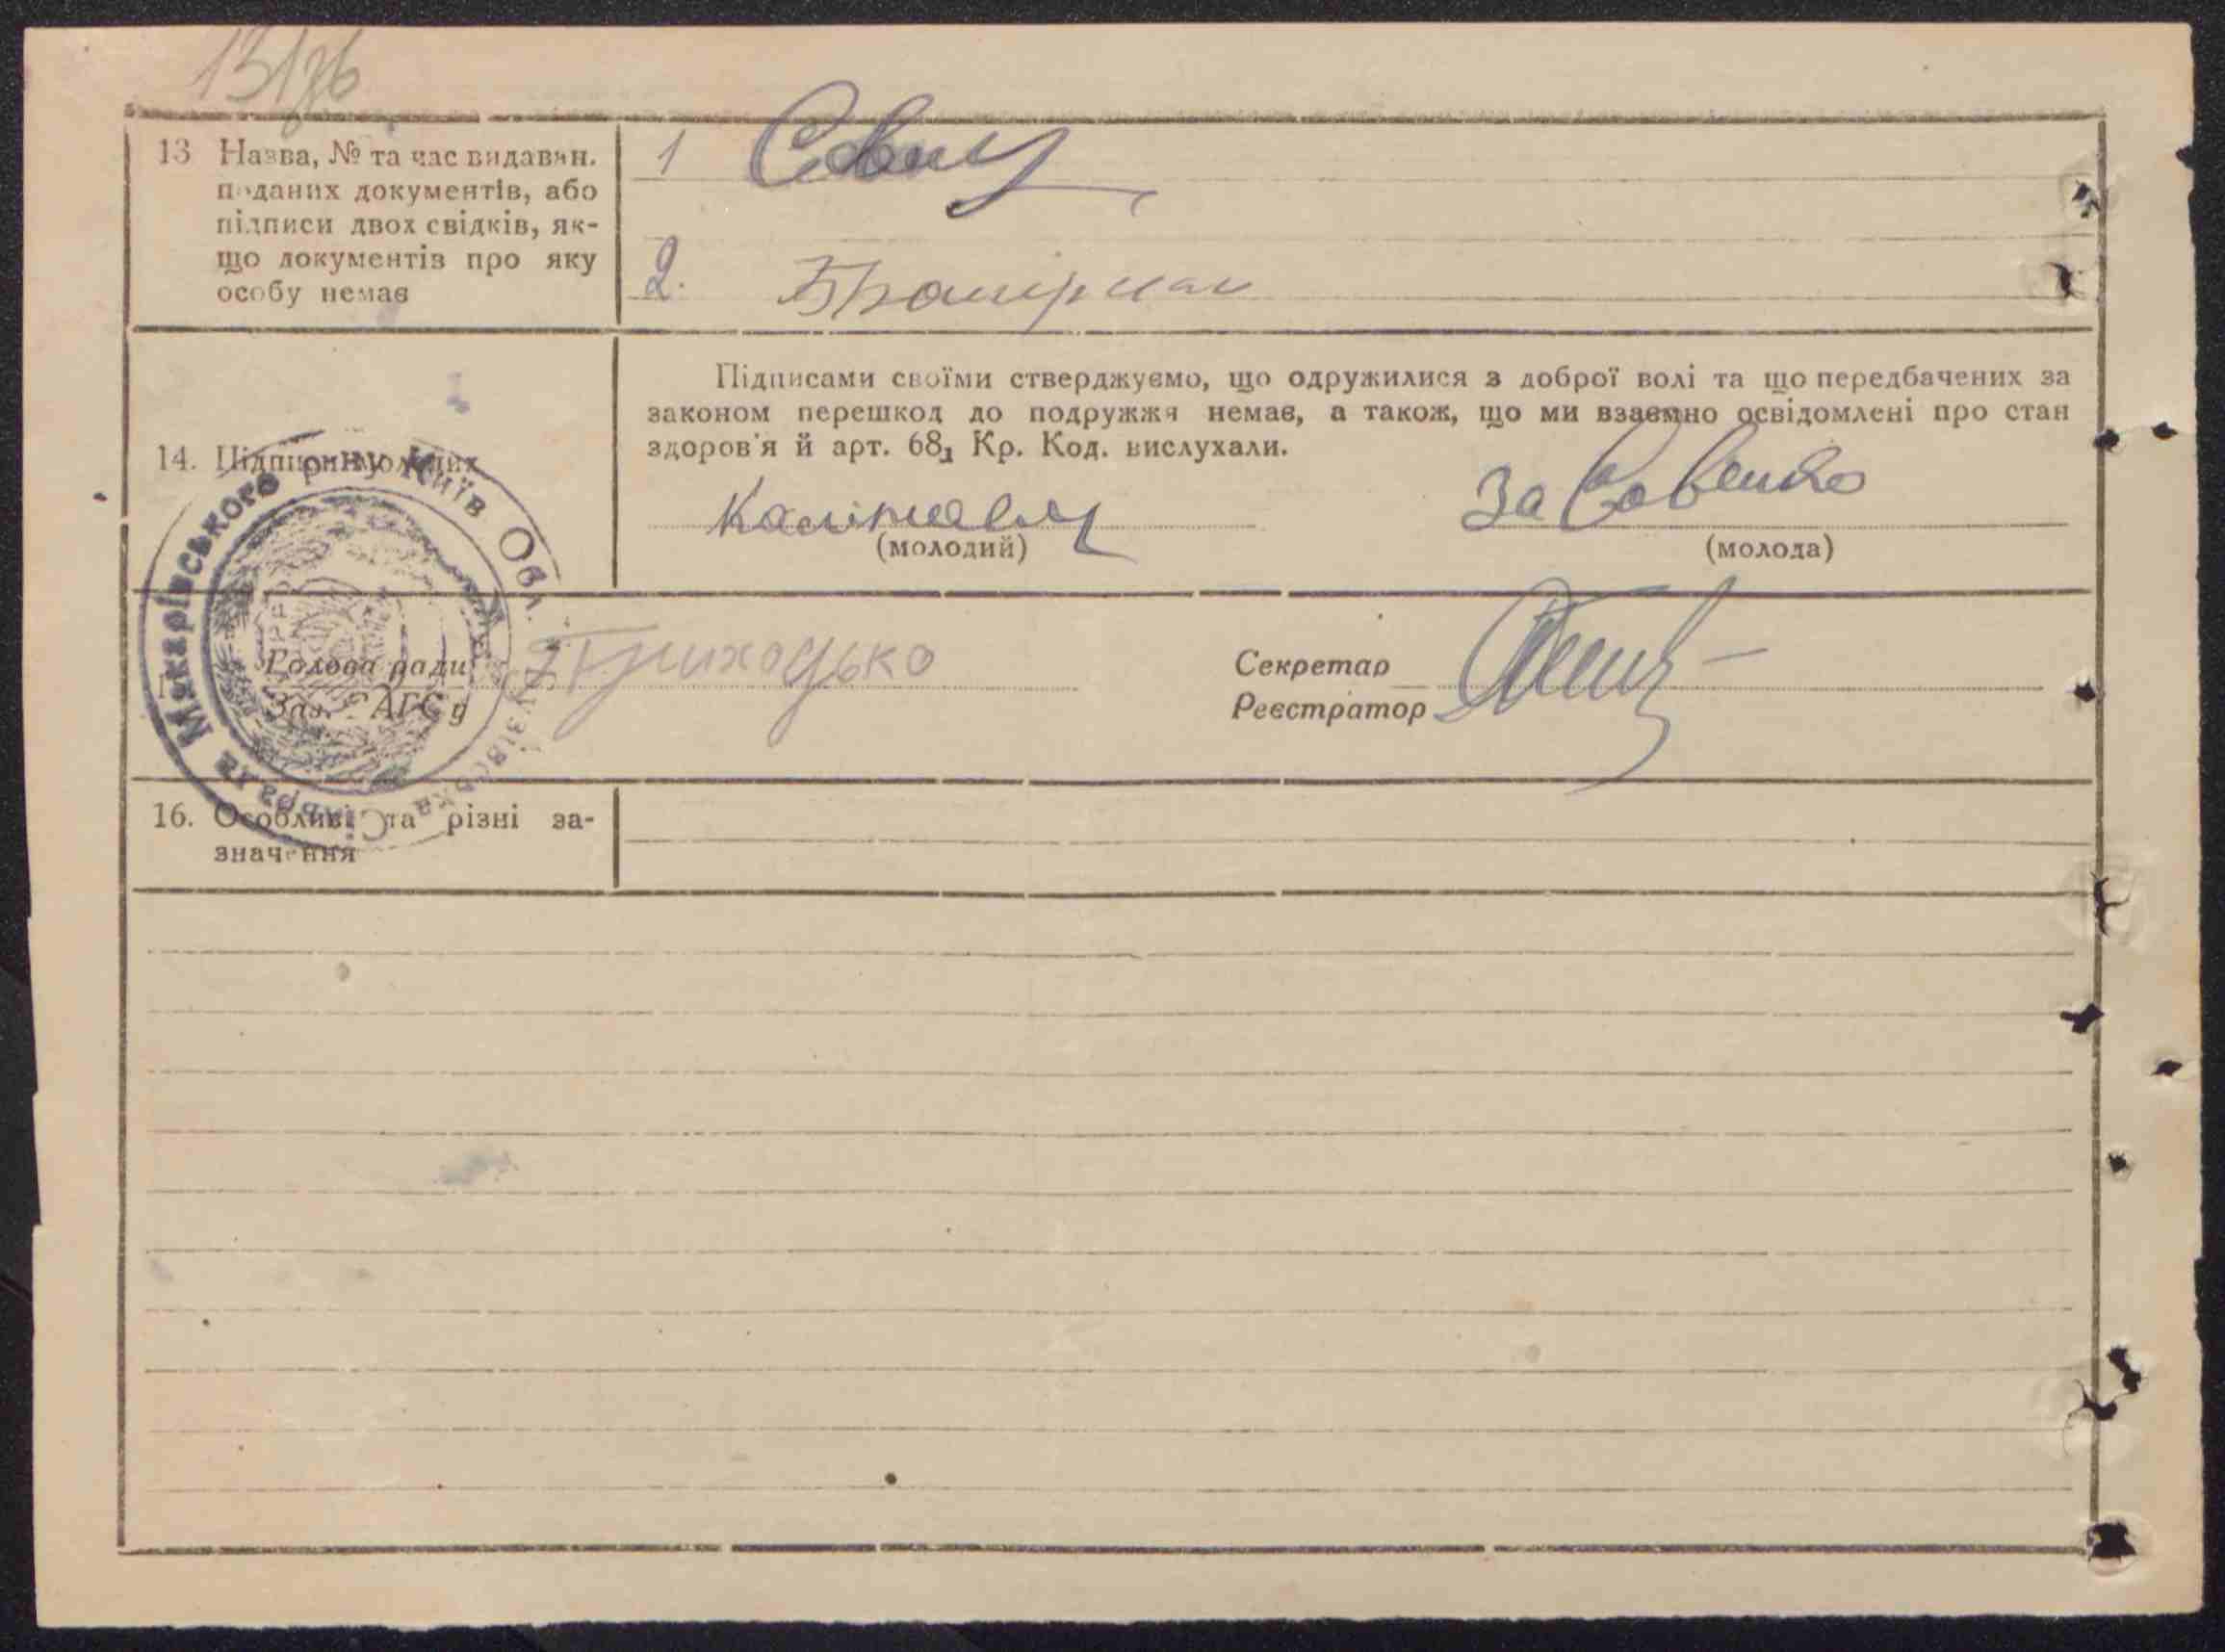 13 Назва, № та час видаван.
поданих документів, або
підписи двох свідків, як-
що документів про яку
особу немає
1
2.
Підписами своїми стверджуємо, що одружилися з доброї волі та що передбачених за
законом перешкод до подружжя немає, а також, що ми взаємно освідомлені про стан
здоров'я й арт. 68₁ Кр. Код. вислухали.
14. Підписи молодих
За Совенко
(молодий) (молода)
Макарівського р-ну Київ Обл.
Голова ради Приходько
Зав. ЗАГСу
Секретар
Реєстратор
16. Особливі та різні за-
значення